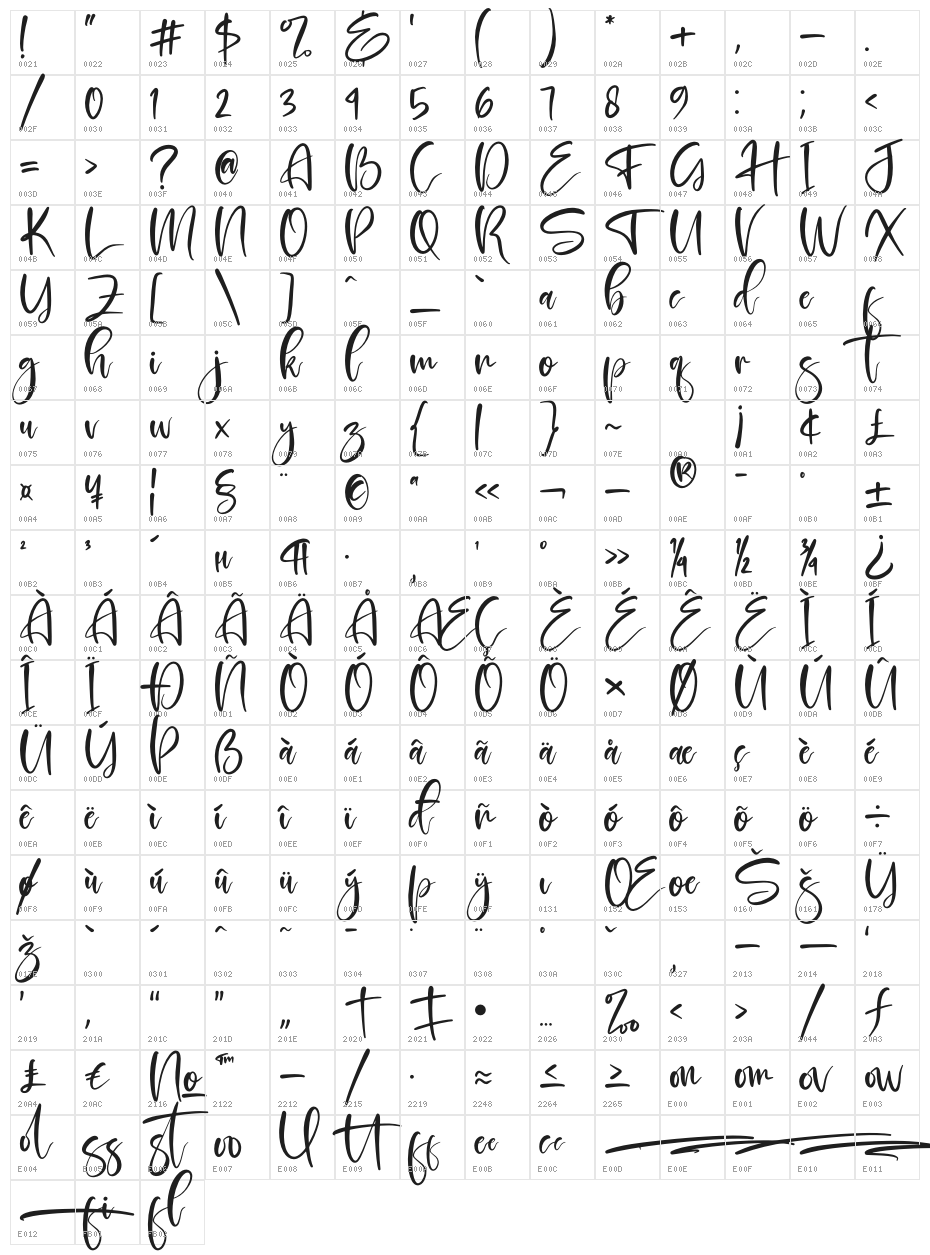 ! " # $ % & ' ( ) * + , - .
0021 0022 0023 0024 0025 0026 0027 0028 0029 002A 002B 002C 002D 002E
/ 0 1 2 3 4 5 6 7 8 9 : ; <
002F 0030 0031 0032 0033 0034 0035 0036 0037 0038 0039 003A 003B 003C
= > ? @ A B C D E F G H I J
003D 003E 003F 0040 0041 0042 0043 0044 0045 0046 0047 0048 0049 004A
K L M N O P Q R S T U V W X
004B 004C 004D 004E 004F 0050 0051 0052 0053 0054 0055 0056 0057 0058
Y Z [ \ ] ^ _ ` a b c d e f
0059 005A 005B 005C 005D 005E 005F 0060 0061 0062 0063 0064 0065 0066
g h i j k l m n o p q r s t
0067 0068 0069 006A 006B 006C 006D 006E 006F 0070 0071 0072 0073 0074
u v w x y z { | } ~ ¡ ¢ £
0075 0076 0077 0078 0079 007A 007B 007C 007D 007E 00A0 00A1 00A2 00A3
¤ ¥ ¦ § ¨ © ª « ¬ - ® ¯ ° ±
00A4 00A5 00A6 00A7 00A8 00A9 00AA 00AB 00AC 00AD 00AE 00AF 00B0 00B1
² ³ ´ µ ¶ · ¸ ¹ º » ¼ ½ ¾ ¿
00B2 00B3 00B4 00B5 00B6 00B7 00B8 00B9 00BA 00BB 00BC 00BD 00BE 00BF
À Á Â Ã Ä Å Æ Ç È É Ê Ë Ì Í
00C0 00C1 00C2 00C3 00C4 00C5 00C6 00C7 00C8 00C9 00CA 00CB 00CC 00CD
Î Ï Ð Ñ Ò Ó Ô Õ Ö × Ø Ù Ú Û
00CE 00CF 00D0 00D1 00D2 00D3 00D4 00D5 00D6 00D7 00D8 00D9 00DA 00DB
Ü Ý Þ ß à á â ã ä å æ ç è é
00DC 00DD 00DE 00DF 00E0 00E1 00E2 00E3 00E4 00E5 00E6 00E7 00E8 00E9
ê ë ì í î ï ð ñ ò ó ô õ ö ÷
00EA 00EB 00EC 00ED 00EE 00EF 00F0 00F1 00F2 00F3 00F4 00F5 00F6 00F7
ø ù ú û ü ý þ ÿ ı Œ œ Š š Ÿ
00F8 00F9 00FA 00FB 00FC 00FD 00FE 00FF 0131 0152 0153 0160 0161 0178
ž ̀ ́ ̂ ̃ ̄ ̇ ̈ ̊ ̌ ̧ – — ‘
017E 0300 0301 0302 0303 0304 0307 0308 030A 030C 0327 2013 2014 2018
’ ‚ “ ” „ † ‡ • … ‰ ‹ › ⁄ ₣
2019 201A 201C 201D 201E 2020 2021 2022 2026 2030 2039 203A 2044 20A3
₤ € № ™ − ∕ ∙ ≈ ≤ ≥ on om ov ow
20A4 20AC 2116 2122 2212 2215 2219 2248 2264 2265 E000 E001 E002 E003
ol ss st oo U tt ff ee cc
E004 E005 E006 E007 E008 E009 E00A E00B E00C E00D E00E E00F E010 E011
fi fl
E012 FB01 FB02